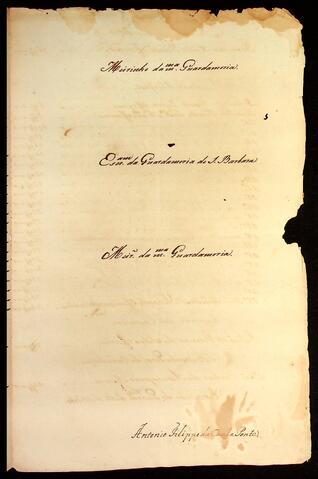 Meirinho da mᵐᵃ. Guardamoria.
5
Esc.ᵃᵐ da Guardamoria de S. Barbara
Meir.º da mᵐᵃ. Guardamoria.
Antonio Filippe da Cunha Ponte